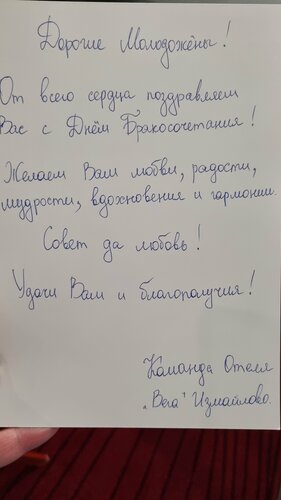 Дорогие Молодожёны!
От всего сердца поздравляем
Вас с Днём Бракосочетания!
Желаем Вам любви, радости,
мудрости, вдохновения и гармонии.
Совет да любовь!
Удачи Вам и благополучия!
Команда Отеля
„Вега" Измайлово.